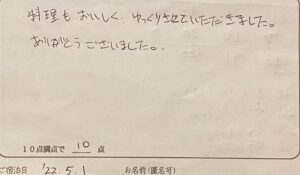 料理もおいしく、ゆっくりさせていただきました。
ありがとうございました。
10点満点で 10 点
ご宿泊日 '22.5.1 お名前(匿名可)